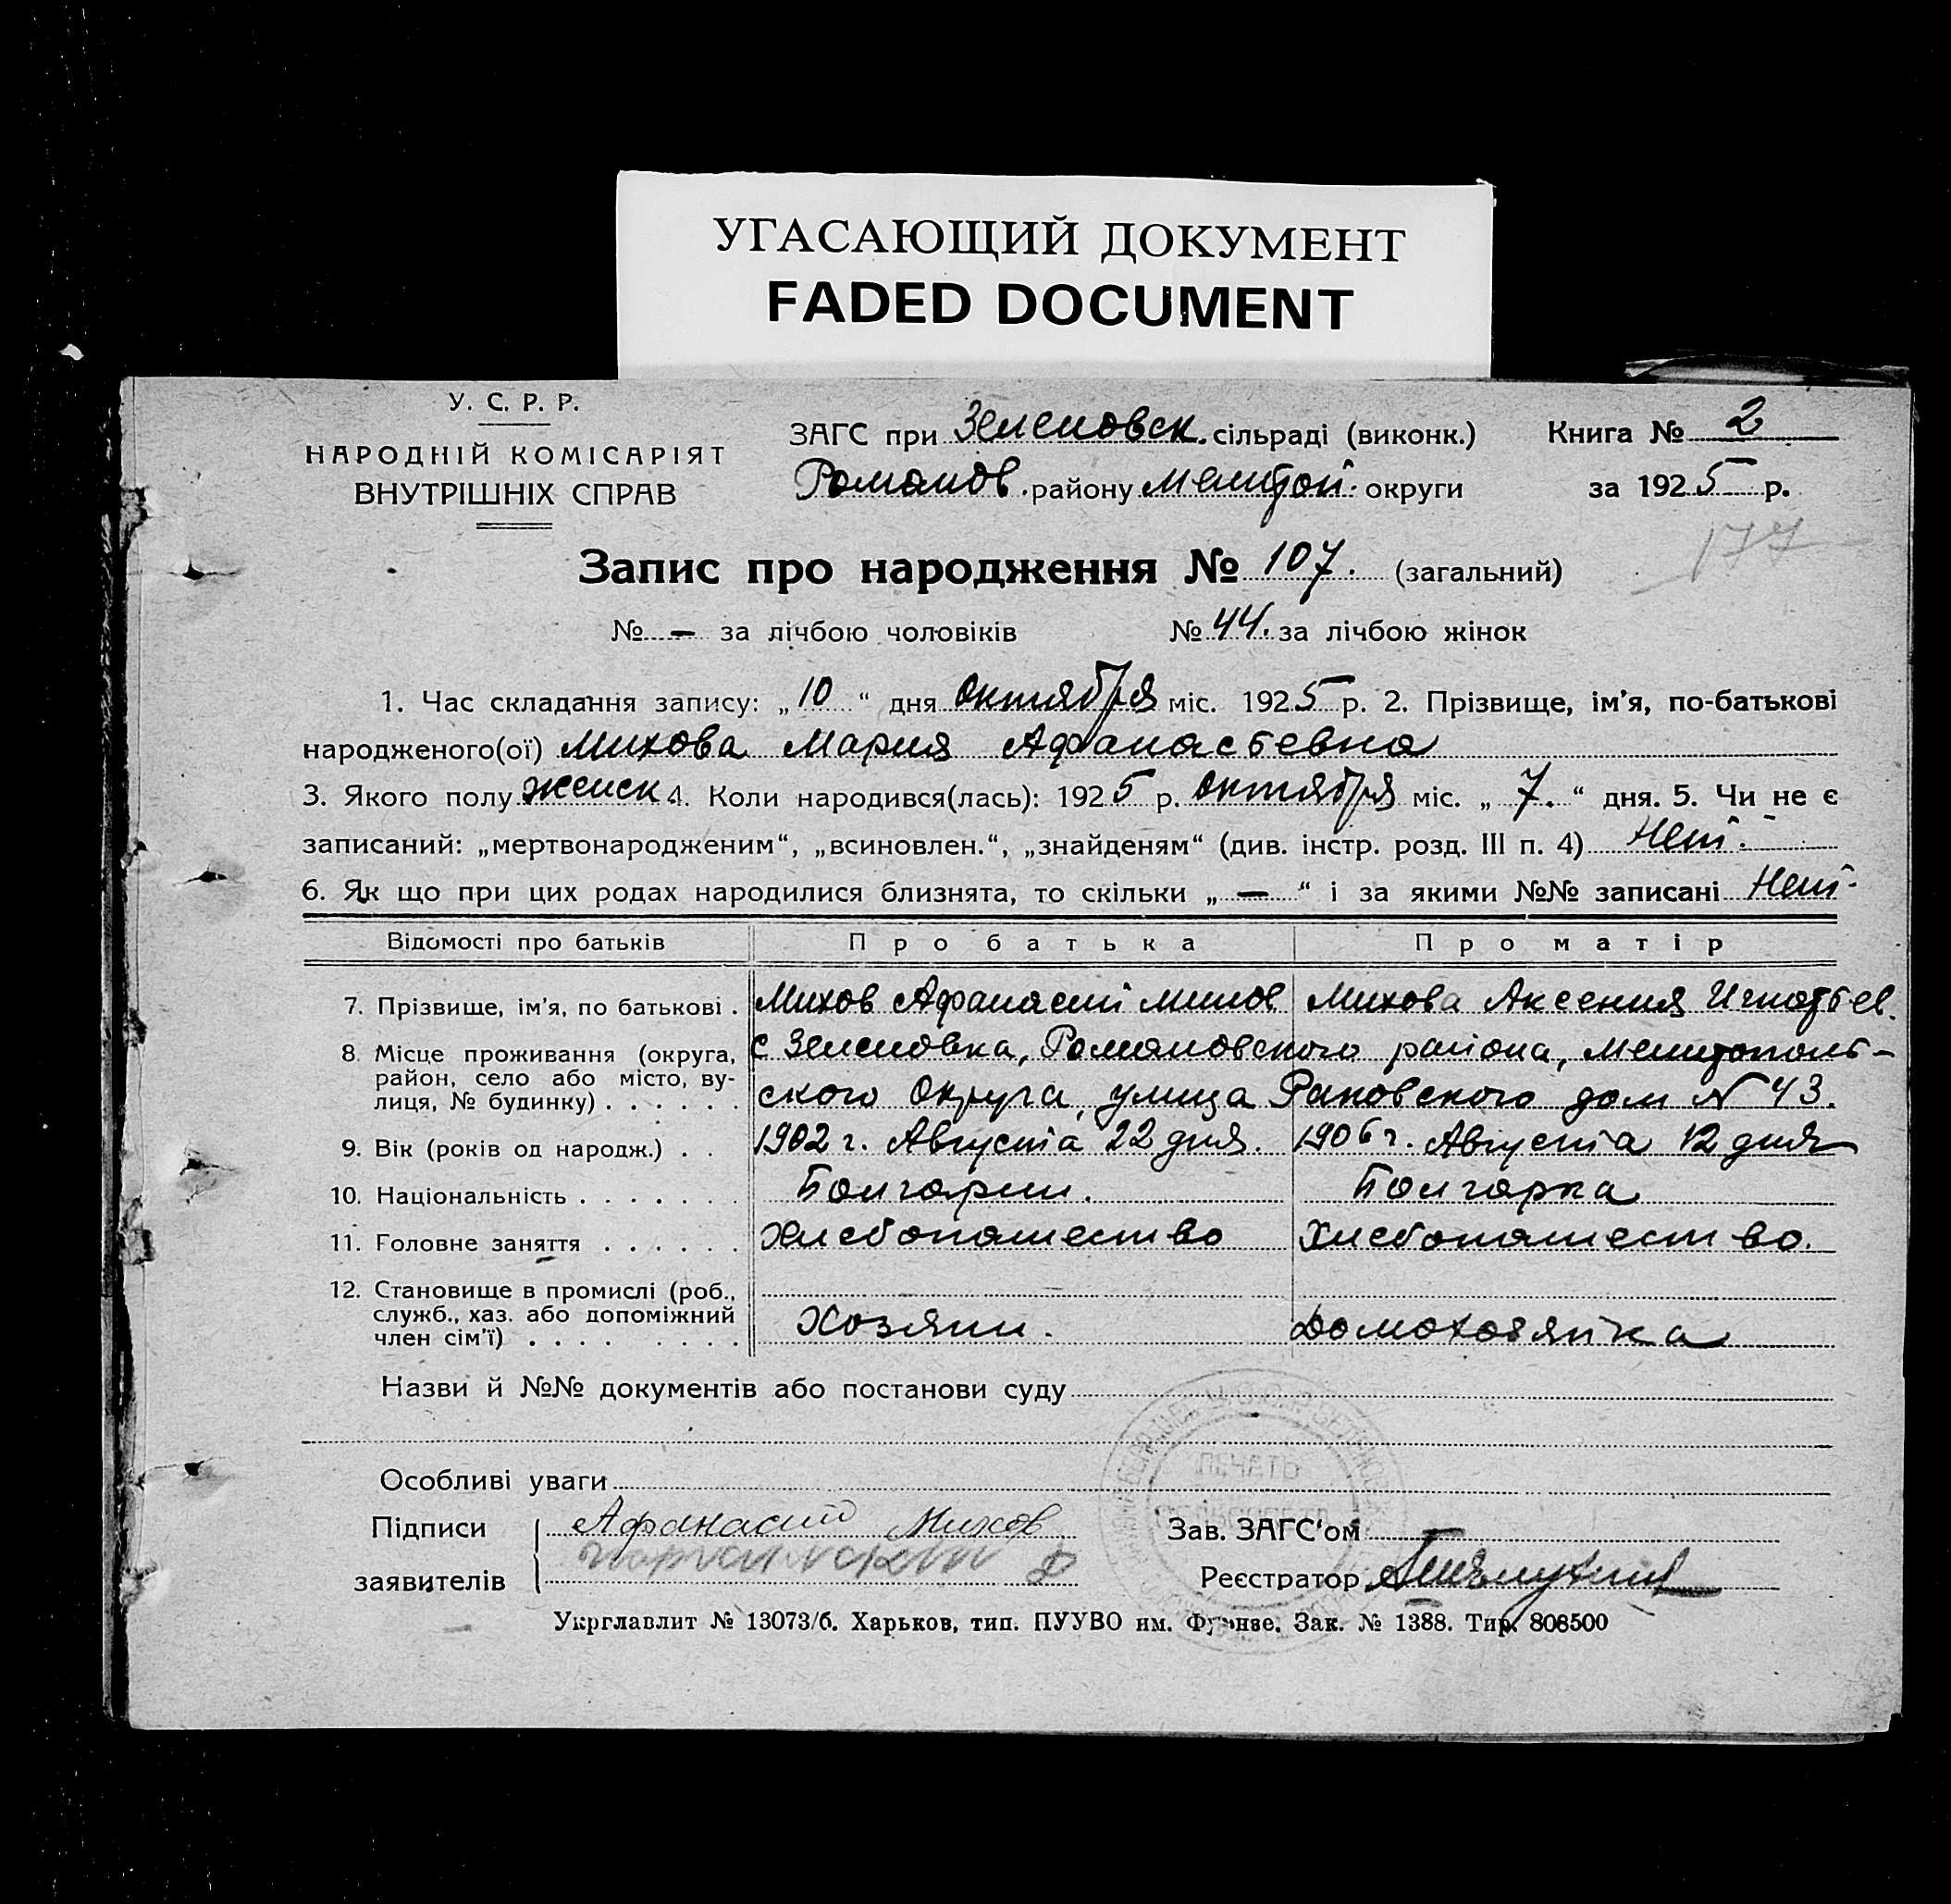 УГАСАЮЩИЙ ДОКУМЕНТ
FADED DOCUMENT
У. С. Р. Р.
НАРОДНІЙ КОМІСАРІЯТ
ВНУТРІШНІХ СПРАВ
ЗАГС при Зеленовск. сільраді (виконк.)
Романов. району Мелитой. округи
Книга № 2
за 1925 р.
177
Запис про народження № 107. (загальний)
№ — за лічбою чоловіків № 44. за лічбою жінок
1. Час складання запису: „10“ дня октября міс. 1925 р. 2. Прізвище, ім’я, по-батькові
народженого(ої) Михова Мария Афанасьевна
3. Якого полу женск 4. Коли народився(лась): 1925 р. октября міс. „7.“ дня. 5. Чи не є
записаний: „мертвонародженим“, „всиновлен.“, „знайденям“ (див. інстр. розд. III п. 4) Нет.
6. Як що при цих родах народилися близнята, то скільки „—“ і за якими №№ записані Нет.
Відомості про батьків Про батька Про матір
7. Прізвище, ім’я, по батькові . Михов Афанасий Михов Михова Аксения Игнатьев.
8. Місце проживання (округа, с Зеленовка, Романовского района, Мелитополь-
район, село або місто, ву-
лиця, № будинку) . . . . . . ского Округа, улица Раковского дом № 43.
9. Вік (років од народж.) . . 1902 г. Августа 22 дня. 1906 г. Августа 12 дня
10. Національність . . . . . . . Болгарин. Болгарка
11. Головне заняття . . . . . . Хлебопашество Хлебопашество.
12. Становище в промислі (роб.,
служб., хаз. або допоміжний
член сім’ї) . . . . . . . . Хозяин. Домохозяйка
Назви й №№ документів або постанови суду
ПЕЧАТЬ
Особливі уваги
Підписи Афанасий Михов Зав. ЗАГС‘ом
заявителів Реєстратор
Укрглавлит № 13073/б. Харьков, тип. ПУУВО им. Фрунзе. Зак. № 1388. Тир. 808500